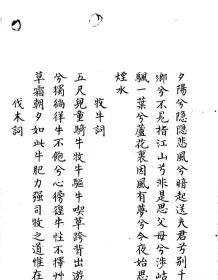 夕陽兮隱隱悲風兮暗起送夫君兮别千
鄉兮不見指江山兮非是思父母兮涉
颿一葉兮蘆花裏因風有夢兮今夜始思
煙水
牧牛詞
五尺兒童騎牛牧牛驅牛喫草跨背出遊
兮獨緔徉牛不飽兮心傍徨牛性不擇艸
草霜朝夕如此牛肥力强司牧之道惟在
伐木詞